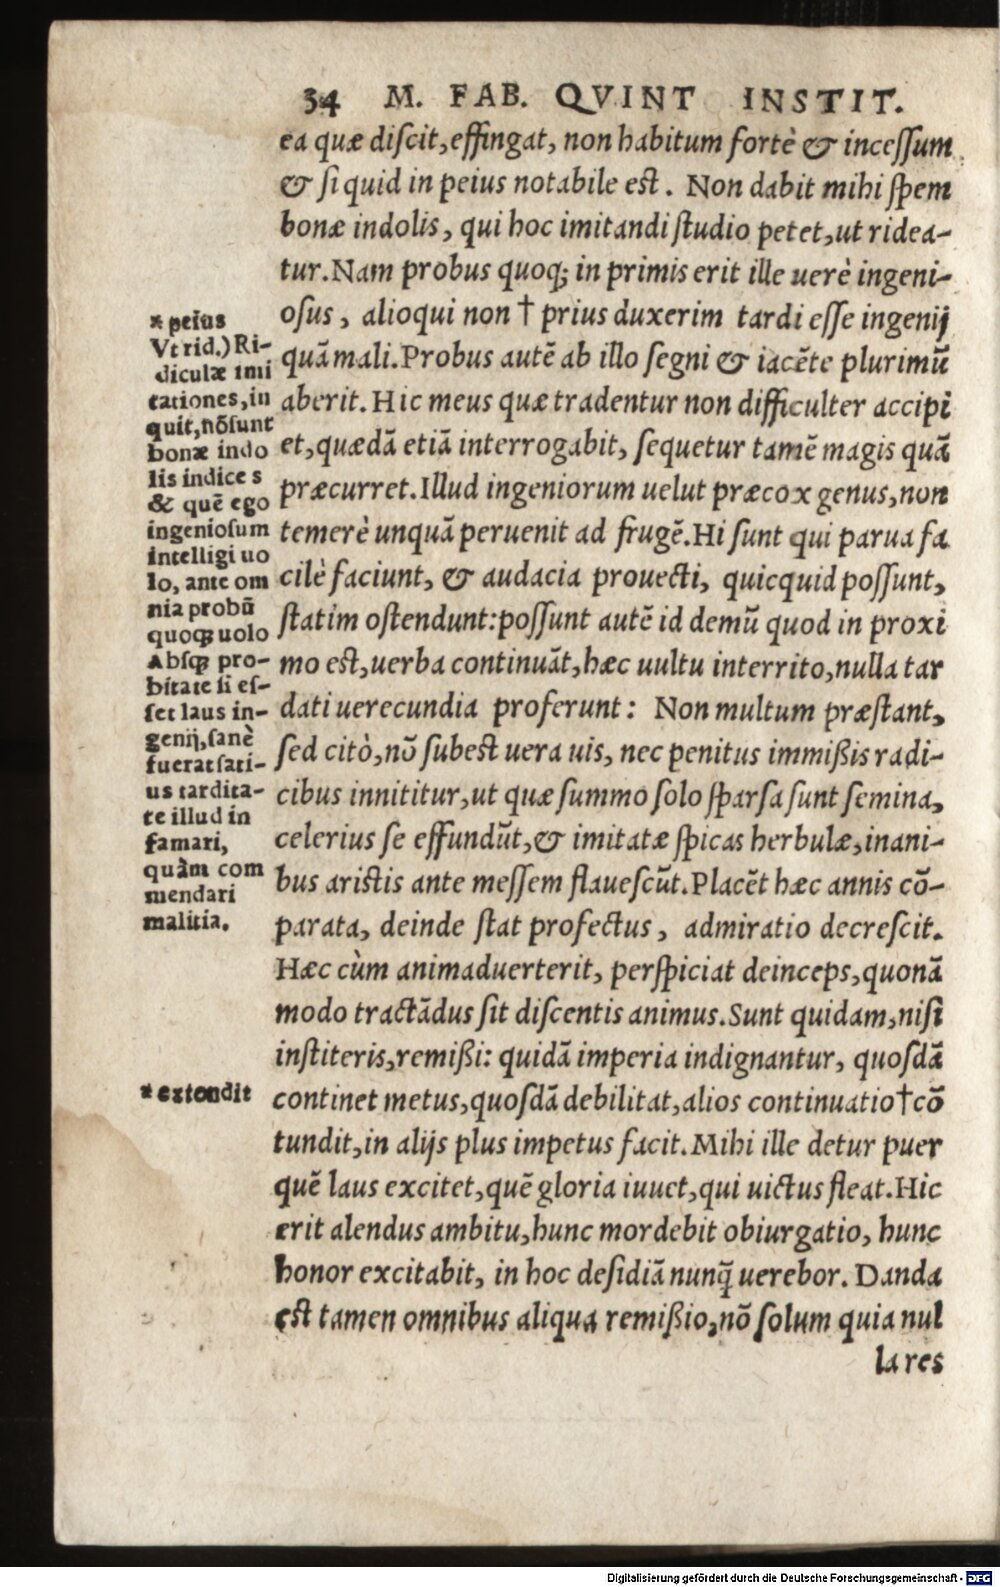 34 M. FAB. QVINT INSTIT.
ea quæ diſcit, effingat, non habitum fortè & inceſſum
& ſi quid in peius notabile eſt. Non dabit mihi ſpem
bonæ indolis, qui hoc imitandi ſtudio petet, ut ridea-
tur. Nam probus quoq; in primis erit ille uerè ingeni-
oſus, alioqui non † prius duxerim tardi eſſe ingenij
quā mali. Probus autē ab illo ſegni & iacēte plurimū
aberit. Hic meus quæ tradentur non difficulter accipi
et, quædā etiā interrogabit, ſequetur tamē magis quā
præcurret. Illud ingeniorum uelut præcox genus, non
temerè unquā peruenit ad frugē. Hi ſunt qui parua fa
cilè faciunt, & audacia prouecti, quicquid poſſunt,
ſtatim oſtendunt: poſſunt autē id demū quod in proxi
mo eſt, uerba continuāt, hæc uultu interrito, nulla tar
dati uerecundia proferunt: Non multum præſtant,
ſed citò, nō ſubeſt uera uis, nec penitus immißis radi-
cibus innititur, ut quæ ſummo ſolo ſparſa ſunt ſemina,
celerius ſe effundūt, & imitatæ ſpicas herbulæ, inani-
bus ariſtis ante meſſem flaueſcūt. Placēt hæc annis cō-
parata, deinde ſtat profectus, admiratio decreſcit.
Hæc cùm animaduerterit, perſpiciat deinceps, quonā
modo tractādus ſit diſcentis animus. Sunt quidam, niſi
inſtiteris, remißi: quidā imperia indignantur, quoſdā
continet metus, quoſdā debilitat, alios continuatio † cō
tundit, in alijs plus impetus facit. Mihi ille detur puer
quē laus excitet, quē gloria iuuet, qui uictus fleat. Hic
erit alendus ambitu, hunc mordebit obiurgatio, hunc
honor excitabit, in hoc deſidiā nunq̄ uerebor. Danda
eſt tamen omnibus aliqua remißio, nō ſolum quia nul
la res
* peius
Vt rid.) Ri-
diculæ imi
tationes, in
quit, nō ſunt
bonæ indo
lis indices
& quē ego
ingenioſum
intelligi uo
lo, ante om
nia probū
quoq; uolo
Abſq; pro-
bitate ſi eſ-
ſet laus in-
genij, ſanè
fuerat ſati-
us tardita-
te illud in
famari,
quàm com
mendari
malitia.
* extendit
Digitalisierung gefördert durch die Deutsche Forschungsgemeinschaft - DFG